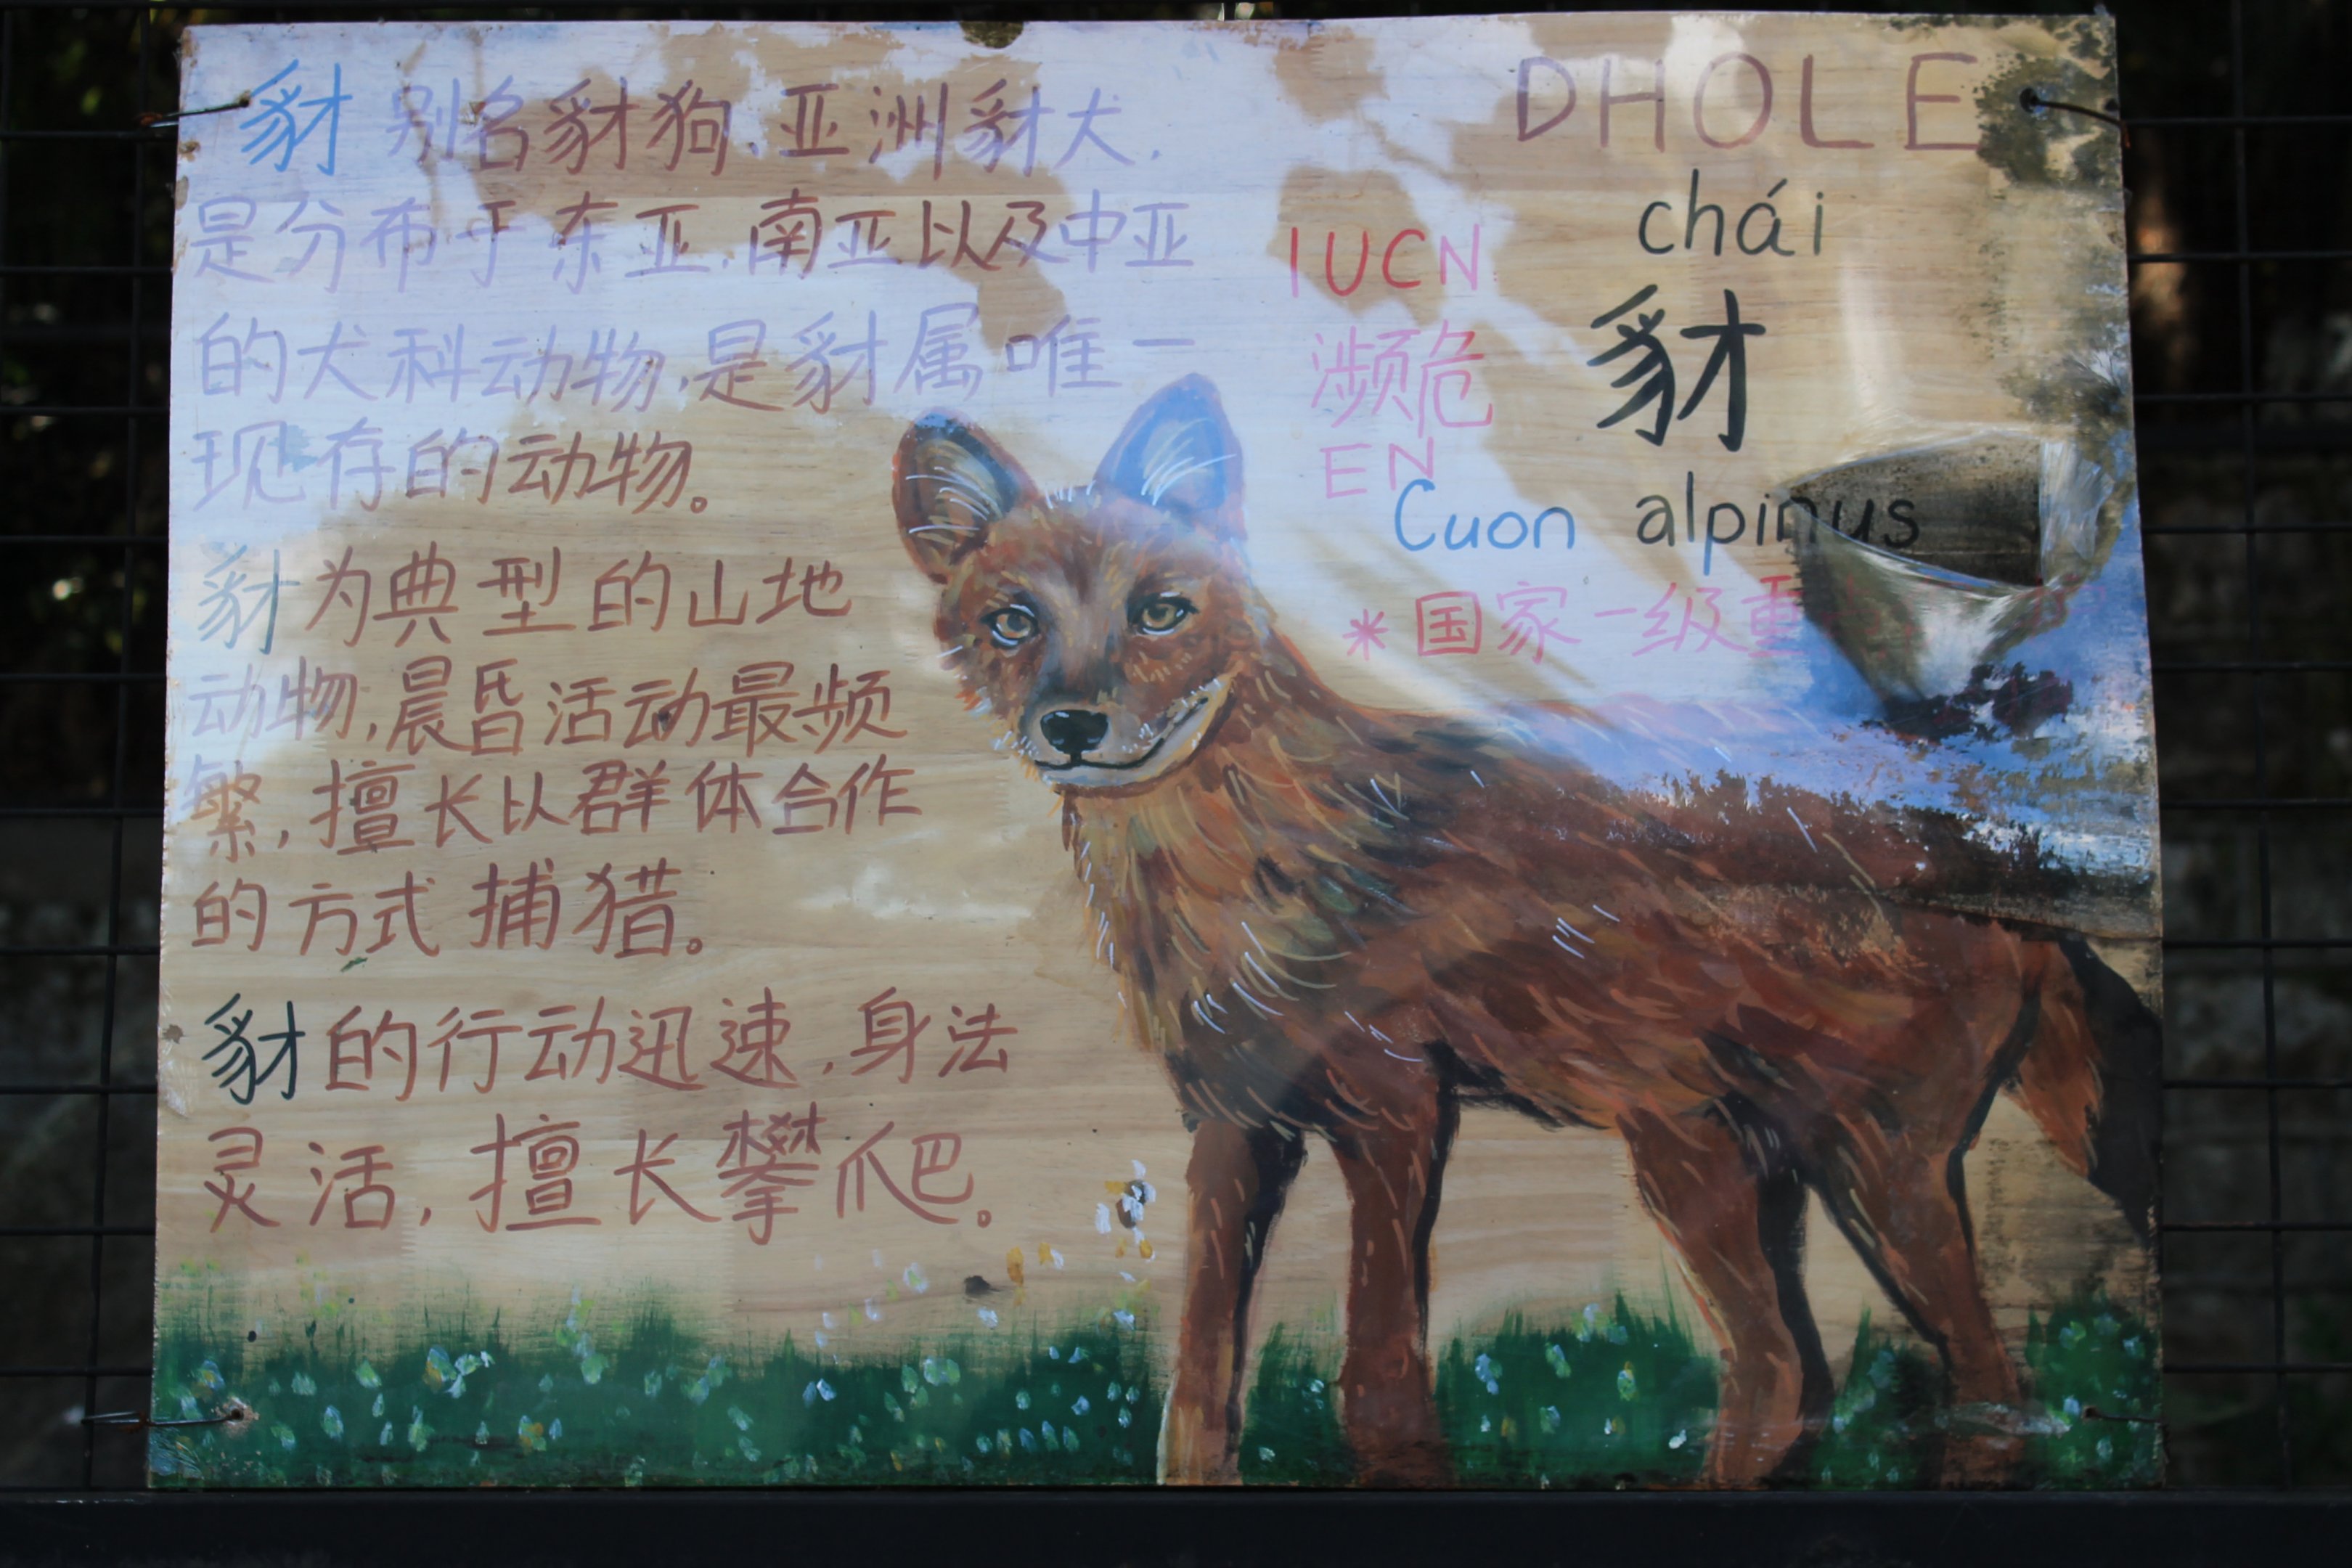 豺 别名豺狗、亚洲豺犬,
是分布于东亚、南亚以及中亚
的犬科动物,是豺属唯一
现存的动物。
豺为典型的山地
动物,晨昏活动最频
繁,擅长以群体合作
的方式捕猎。
豺的行动迅速,身法
灵活,擅长攀爬。
DHOLE
chái
豺
IUCN
濒危
EN
Cuon alpinus
*国家一级重